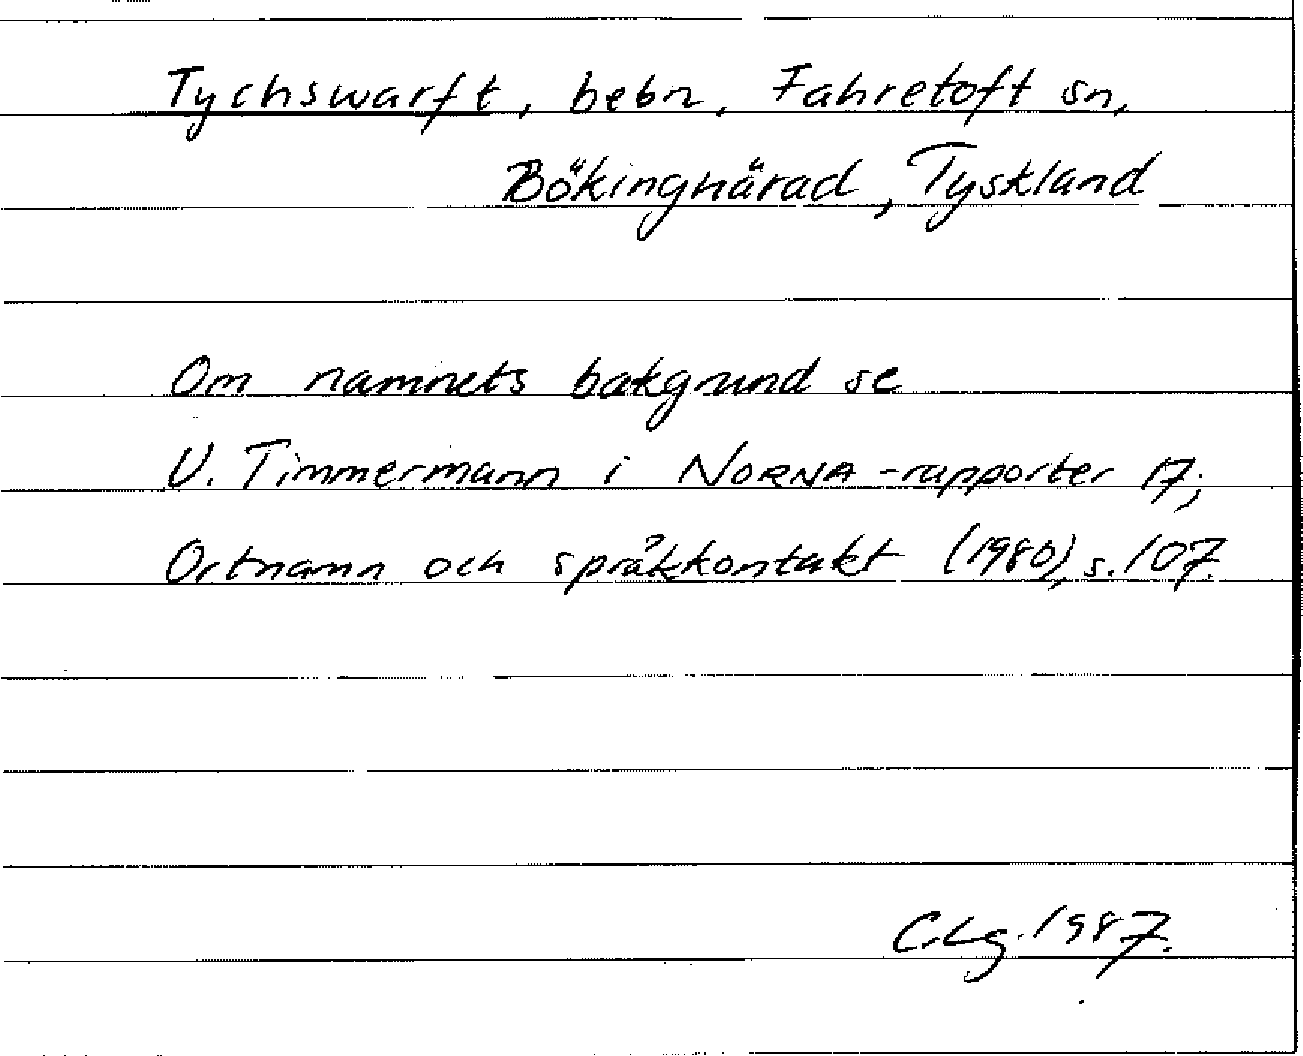 Tychswarft, bebn, Fahretoft sn,
Bökinghärad, Tyskland
Om namnets bakgrund se
U. Timmermann i NORNA-rapporter 17;
Ortnamn och språkkontakt (1980), s. 107.
C.Lg. 1987.